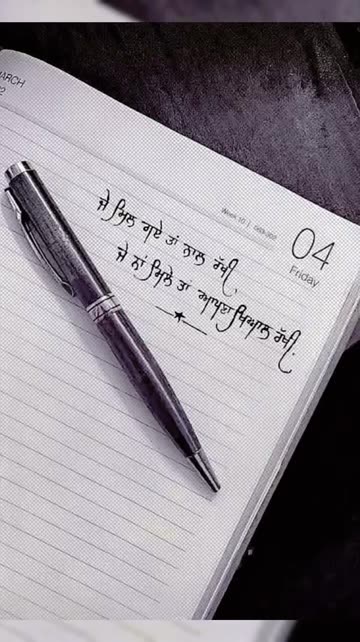 MARCH
2
Week 10 | 063-302
04
Friday
ਜੇ ਮਿਲ ਗਏ ਤਾਂ ਨਾਲ ਰੱਖੀ,
ਜੇ ਨਾਂ ਮਿਲੇ ਤਾਂ ਆਪਣਾ ਖਿਆਲ ਰੱਖੀ.